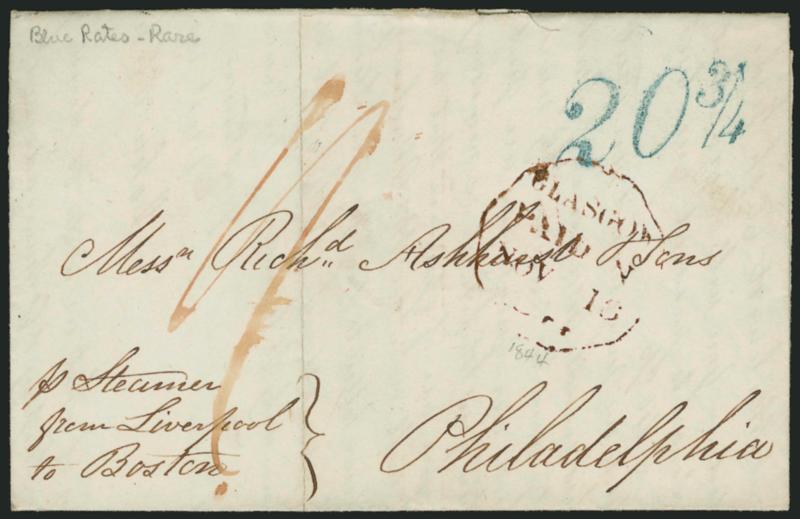 Blue Rates - Rare
20 3/4
GLASGOW
PAID
NOV 18
Messrs Richd Ashhurst & Sons
1844
p Steamer
from Liverpool
to Boston
Philadelphia